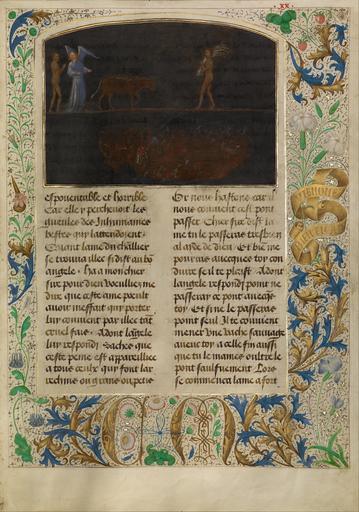 xx.
espouentable et horrible
Car elle y percheuoit les
gueules des Inhumaines
bestes qui lattendoient.
Quant lame du chϯallier
se trouua illec si dist au bō
angele. ha a mon chier
sire pour dieu voeullies me
dire que ceste ame poeult
auoir meffait qui porter
luy conuient par illec tāt
cruel faie. Adont langele
luy respondi. Saches que
ceste peine est appareilliee
a tous ceulx qui font lar
rechins ou grans ou petis
Or nous hastons car il
nous conuient cest pont
passer. Chier sire dist la
me tu le passeras tresbien
al ayde de dieu. Et bie me
pourras auecques toy con
duire se il te plaist. Adont
langele respondi point ne
passeray ce pont auecques
toy. Et si ne le passeras
point seul. Il te conuient
mener vne vache sauuage
auecques toy a celle fin aussi
que tu le maines oultre le
pont saulfuement. Lors
se commenca lame a fort